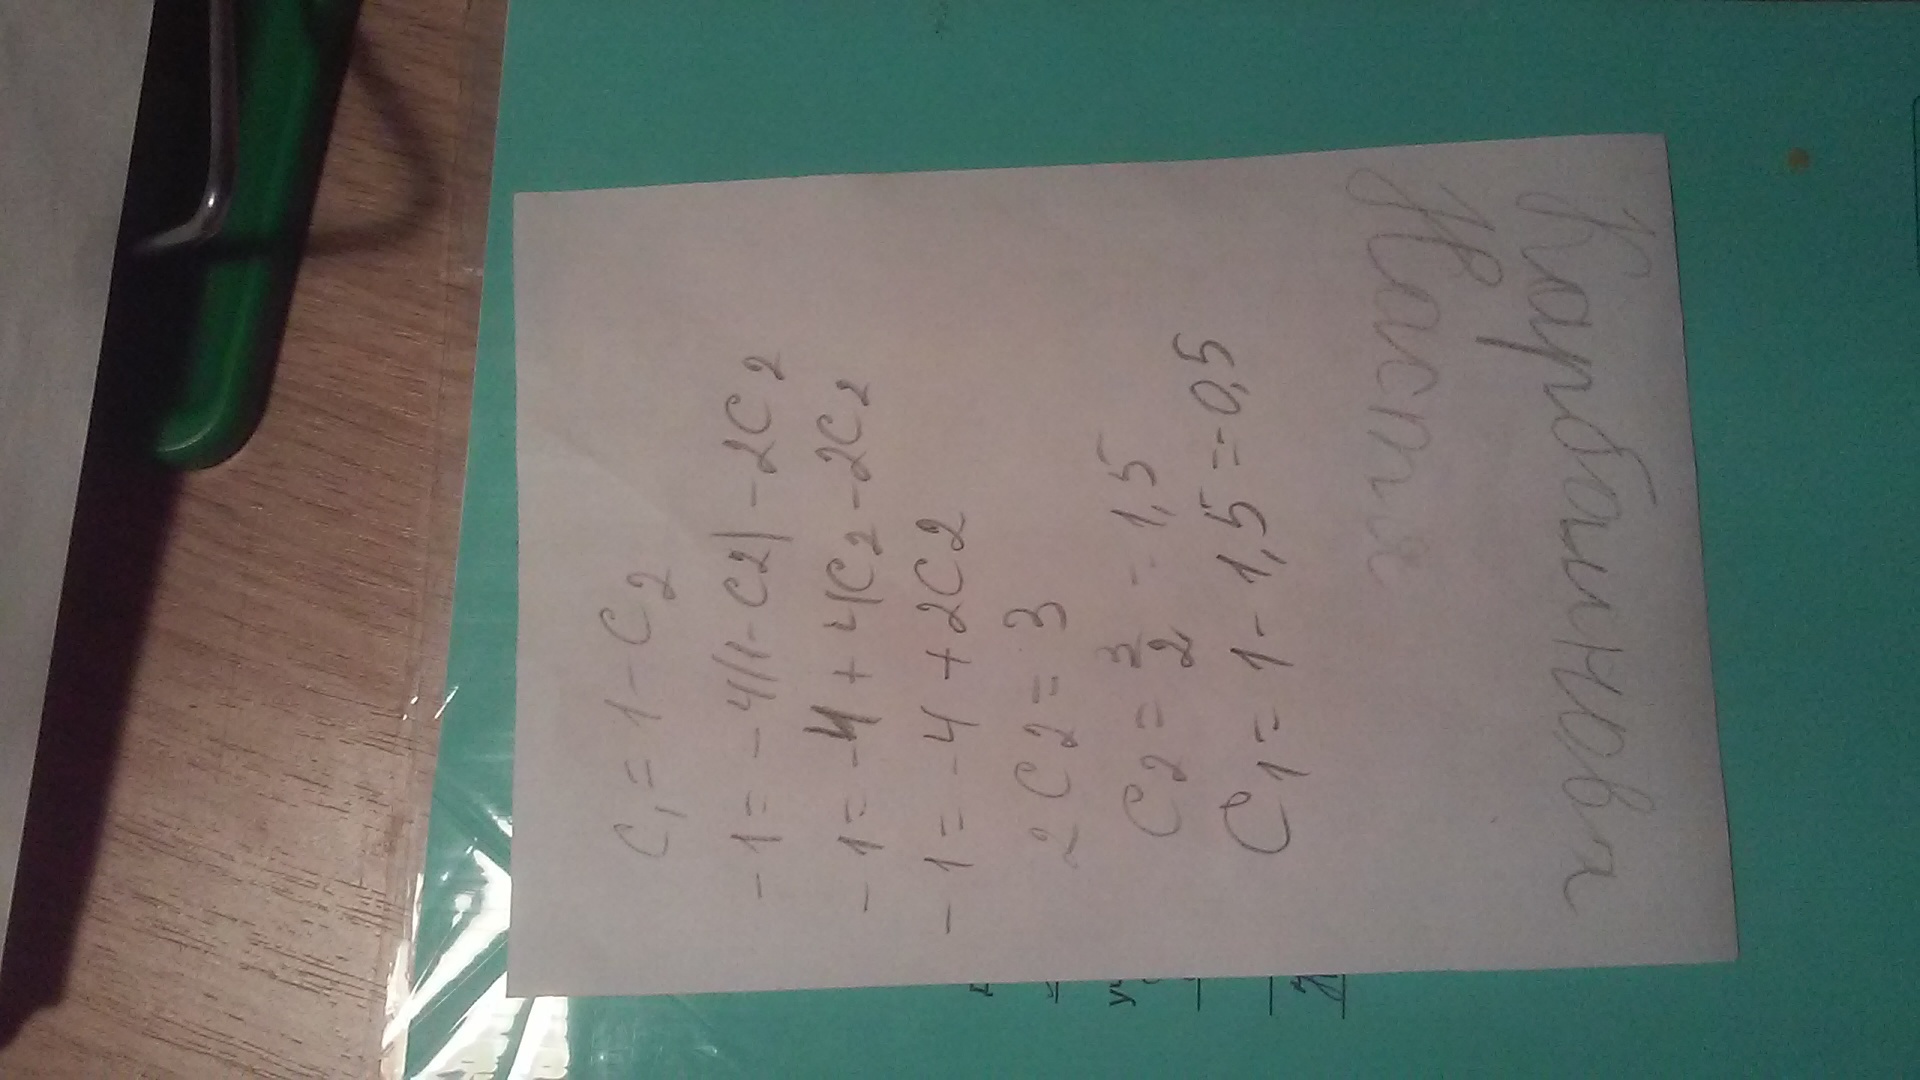 C₁ = 1 - C₂
- 1 = - 4(1 - C2) - 2C2
- 1 = -4 + 4C₂ - 2C₂
- 1 = -4 + 2C2
2C2 = 3
C2 = 3/2 = 1,5
C1 = 1 - 1,5 = - 0,5
Настя
Карбаинова